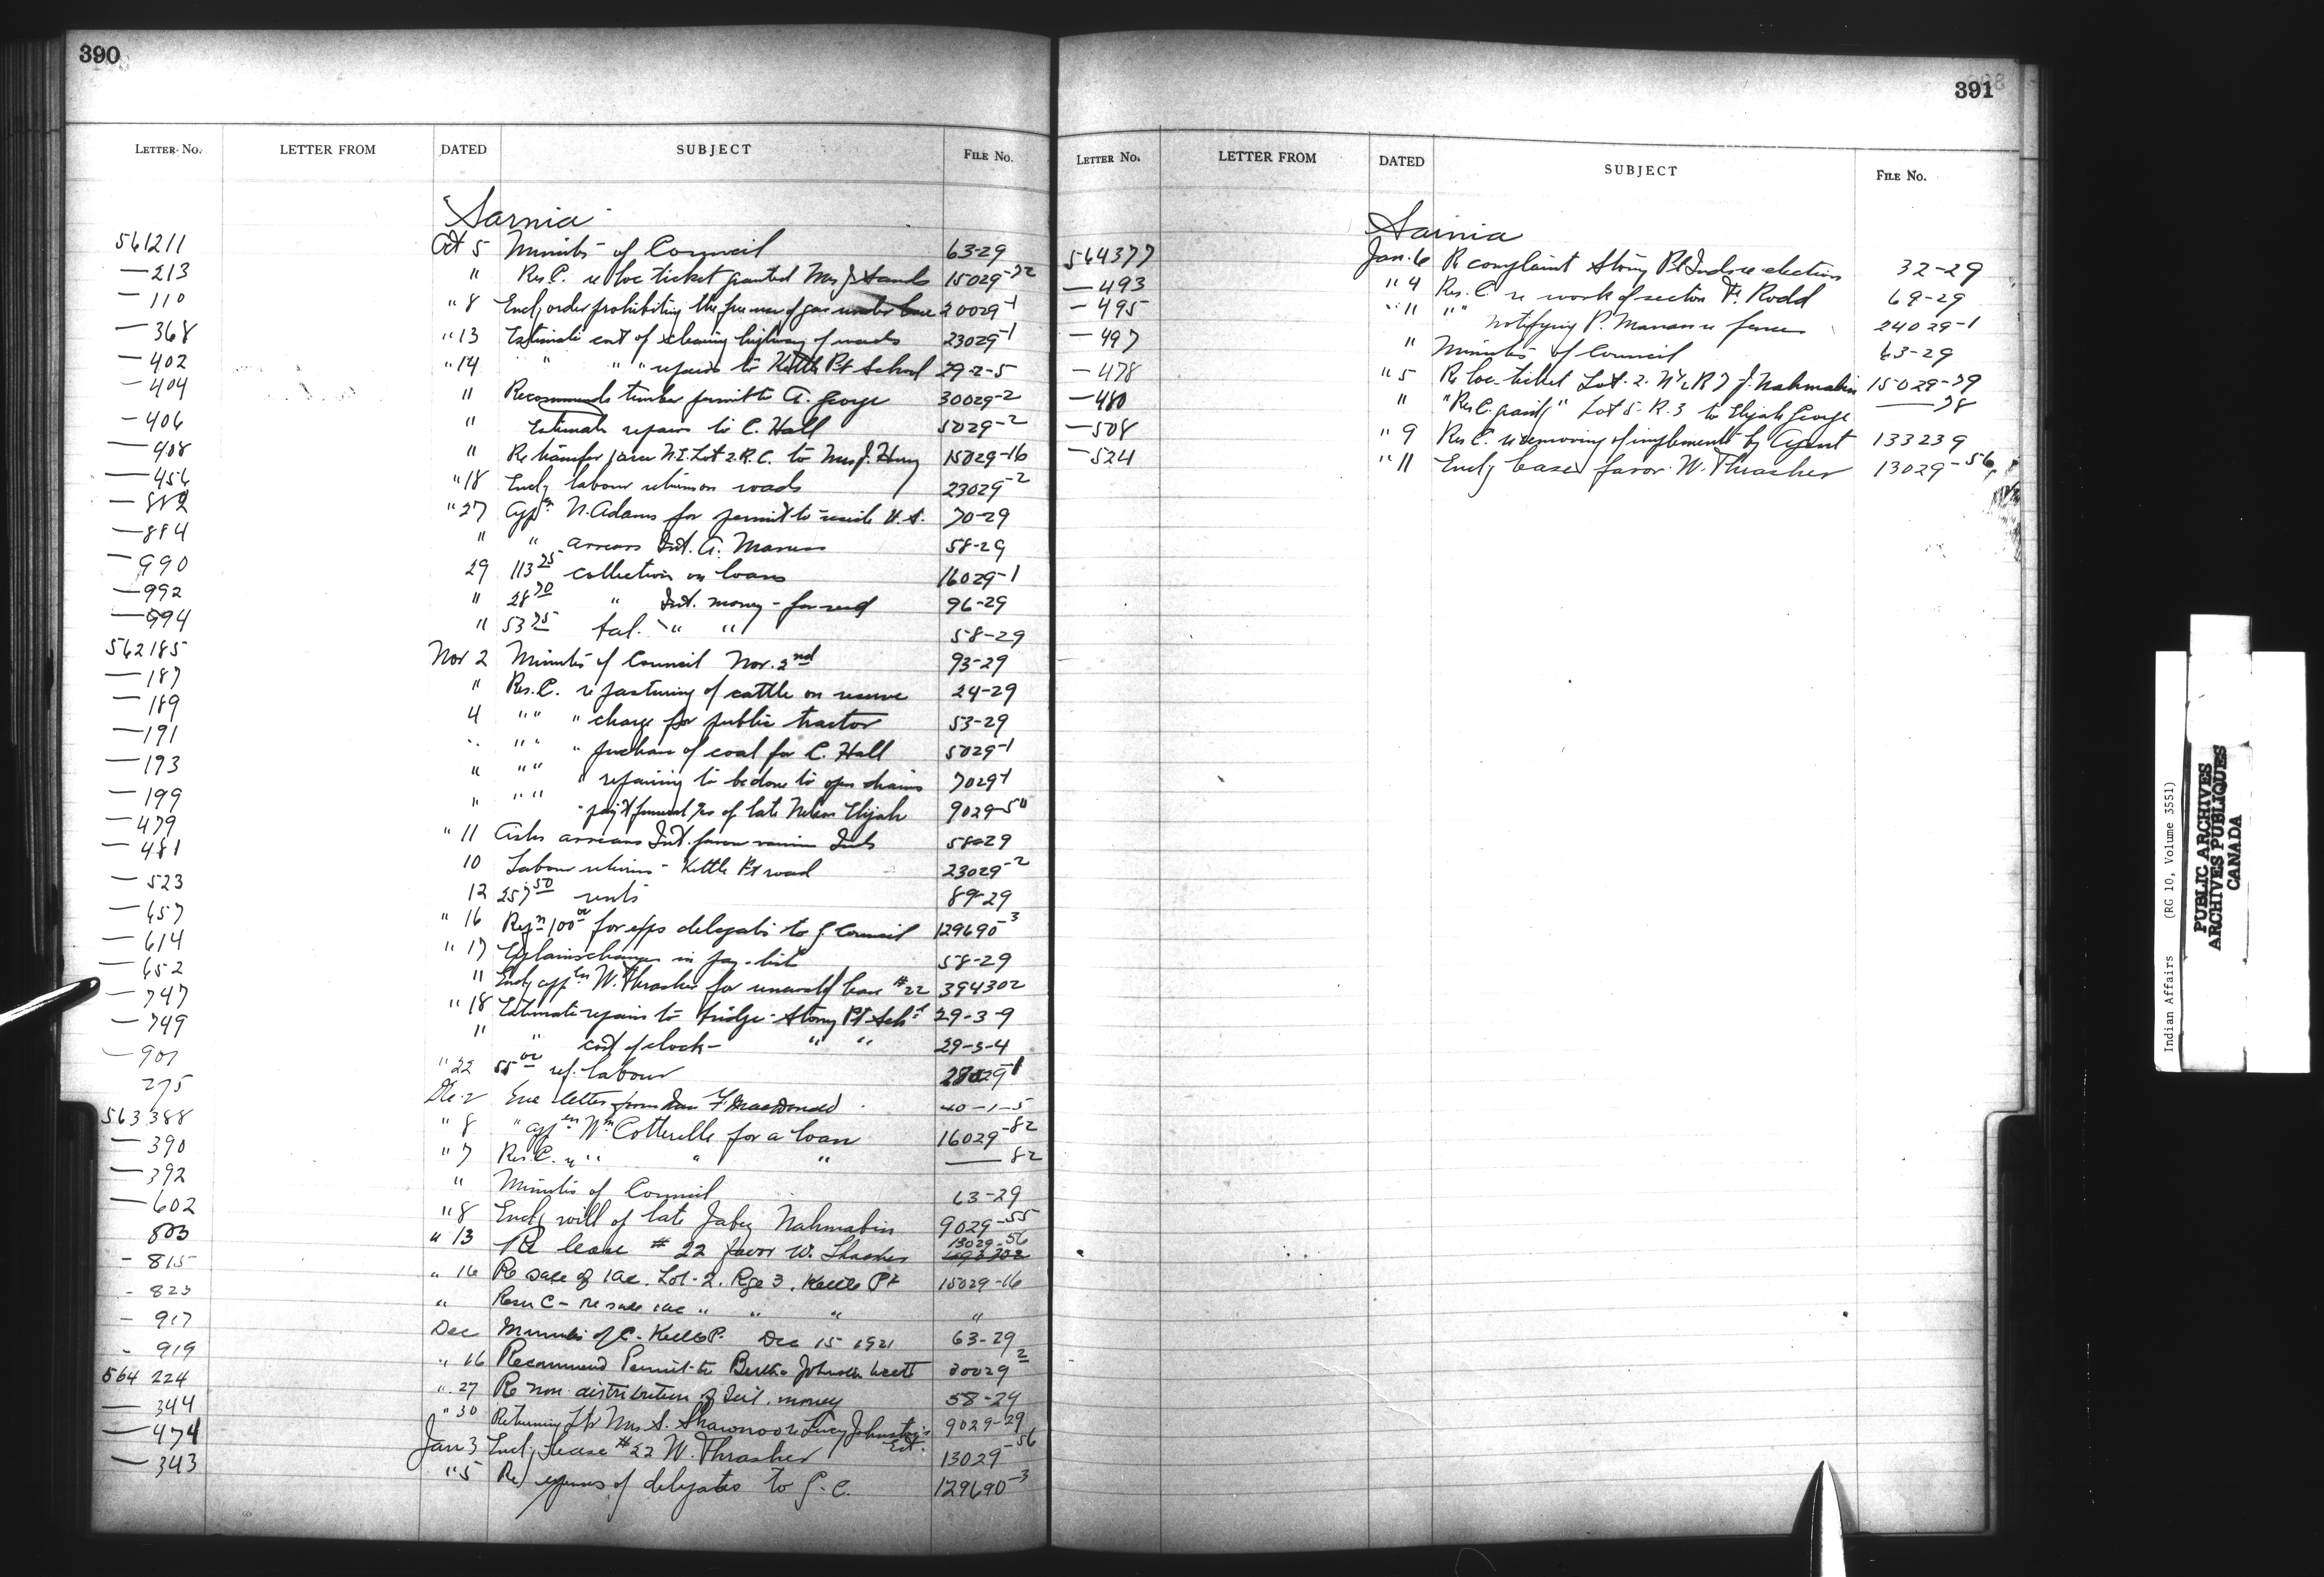 390
LETTER No. LETTER FROM DATED SUBJECT FILE No.
Sarnia
561211 Oct 5 Minutes of Council 63-29
—213 " Res. C. re loc ticket granted Mrs J. Sands 15029-72
—110 " 8 Encl; order prohibiting the free use of gas 20029-1
—368 " 13 Estimate cost of cleaning highway of weeds 23029-1
—402 " 14 " " " repairs to Kettle Pt School 29-2-5
—404 " Recommends timber permit to A. George 30029-2
—406 " Estimate repairs to C. Hall 5029-2
—408 " Re transfer N.E. Lot 2. R.C. to Mrs J. Henry 15029-16
—456 " 18 Encl; labour returns on roads 23029-2
—882 " 27 Appn N. Adams for permit to reside U.S. 70-29
—884 " " arrears Int. A. 58-29
—990 29 113 25 collection on loans 16029-1
—992 " 28 70 " Int. money - for seed 96-29
—994 " 53 75 " " 58-29
562185 Nov 2 Minutes of Council Nov. 2nd 93-29
—187 " Res. C. re pasturing of cattle on reserve 24-29
—189 4 " " " charge for public tractor 53-29
—191 " " " " purchase of coal for C. Hall 5029-1
—193 " " " " repairing to be done to open drains 7029-1
—199 " " " " pay't funeral of late Nelson Elijah 9029-50
—479 " 11 Asks arrears Int. favor various Inds 58-29
—481 10 Labour returns - Kettle Pt road 23029-2
—523 12 257 50 rents 89-29
—657 " 16 Reqn 100 00 for exps delegates to G. Council 129690-3
—614 " 17 Explains changes in pay-list 58-29
—652 " Encl; appln W. Thrasher for renewal of lease #22 394302
—747 " 18 Estimate repairs to bridge - Stony Pt Schl 29-3-9
—749 " " cost of clock - " " 29-3-4
—901 " 22 55 00 ref. labour 28029-1
275 Dec 2 Enc letter from F. MacDonald 40-1-5
563388 " 8 " appln Wm Cotterelle for a loan 16029-82
—390 " 7 Res. C. " " " " —82
—392 " Minutes of Council 63-29
—602 " 8 Encl; will of late Jabez Nahmabin 9029-55
803 " 13 Re lease #22 favor W. Thrasher 13029-56
- 815 " 16 Re sale of 1 ac. Lot-2. Rge 3. Kettle Pt 15029-16
- 823 " Resn C - re sale 1 ac " " " "
- 917 Dec Minutes of C. Kettle P. Dec 15 1921 63-29
- 919 " 16 Recommend Permit to Bertha Johnston 30029-2
564 224 " 27 Re non distribution of Int. money 58-29
—344 " 30 Returning Ltr Mrs S. Shawnoo re Lucy Johnston's Est. 9029-29
—474 Jan 3 Encl; lease #22 W. Thrasher 13029-56
—343 " 5 Re expenses of delegates to G.C. 129690-3
391
LETTER No. LETTER FROM DATED SUBJECT FILE No.
Sarnia
564377 Jan. 6 Re complaint Stony Pt Inds re election 32-29
—493 " 4 Res. C. re work of sexton F. Rodd 69-29
—495 " " " " notifying P. re fences 24029-1
—497 " Minutes of Council 63-29
—478 " 5 Re loc. ticket Lot. 2. R 7 J. Nahmabin 15029-79
—480 " " Res C. granting " Lot 5 - R. 3 to Elijah George —78
—508 " 9 Res C. re removing of implements by Agent 133239
—524 " 11 Encl; lease favor W. Thrasher 13029-56
Indian Affairs (RG 10, Volume 3551)
PUBLIC ARCHIVES
ARCHIVES PUBLIQUES
CANADA